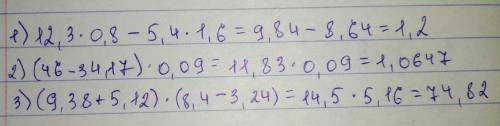 1) 12,3 · 0,8 − 5,4 · 1,6 = 9,84 − 8,64 = 1,2
2) (46 − 34,17) · 0,09 = 11,83 · 0,09 = 1,0647
3) (9,38 + 5,12) · (8,4 − 3,24) = 14,5 · 5,16 = 74,82